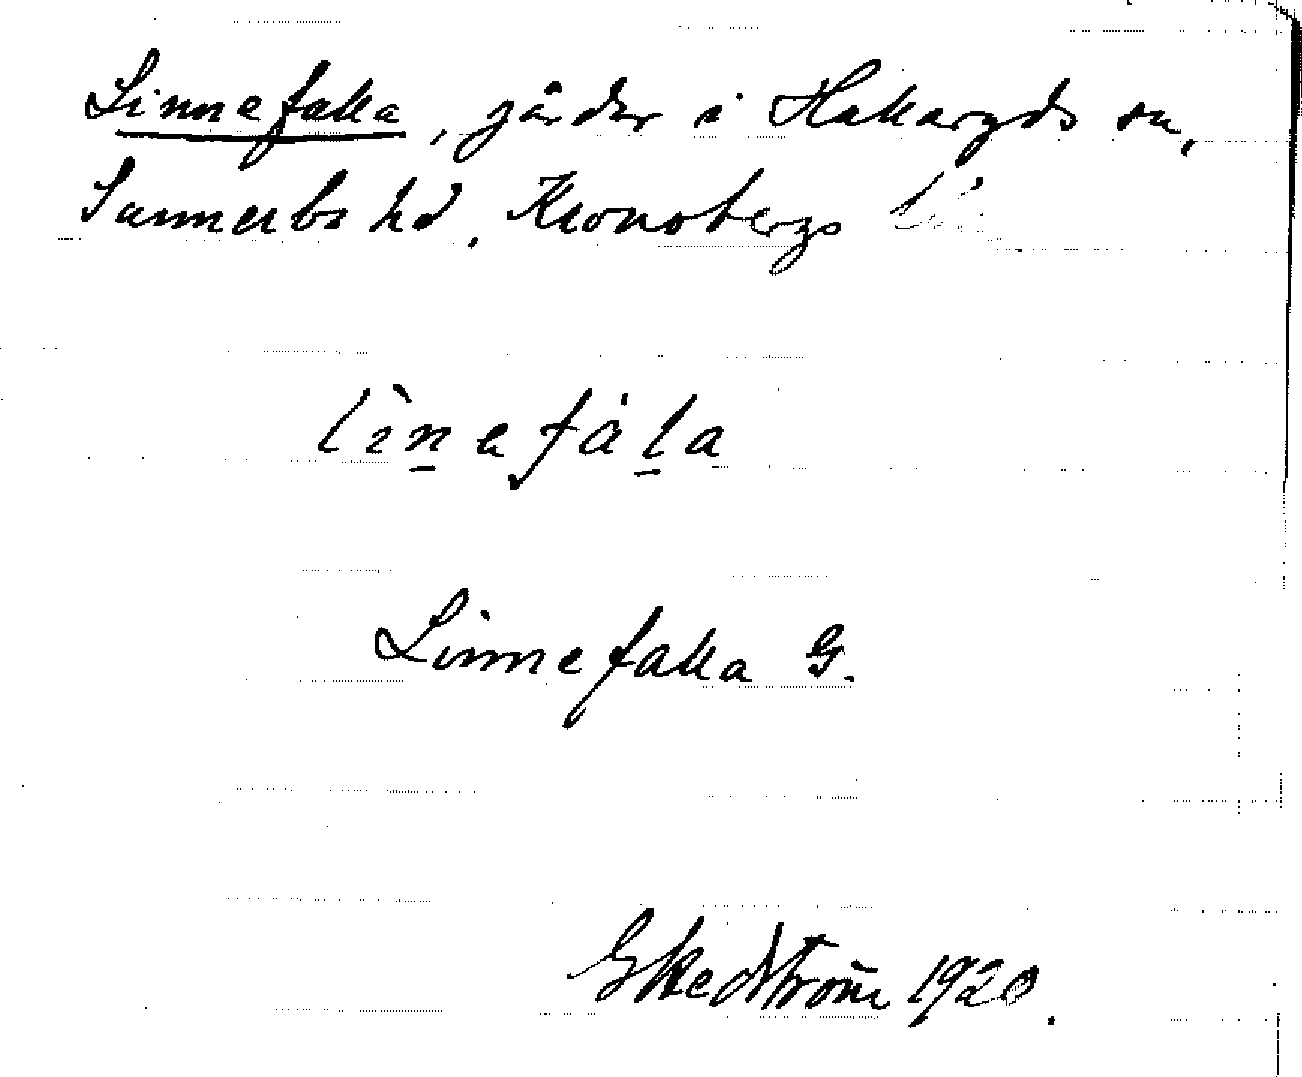 Linnefalla, gårdar i Hallaryds sn,
Sunnerbo hd, Kronobergs län
lìn̲efàl̲a
Linnefalla G.
GHedström 1920.